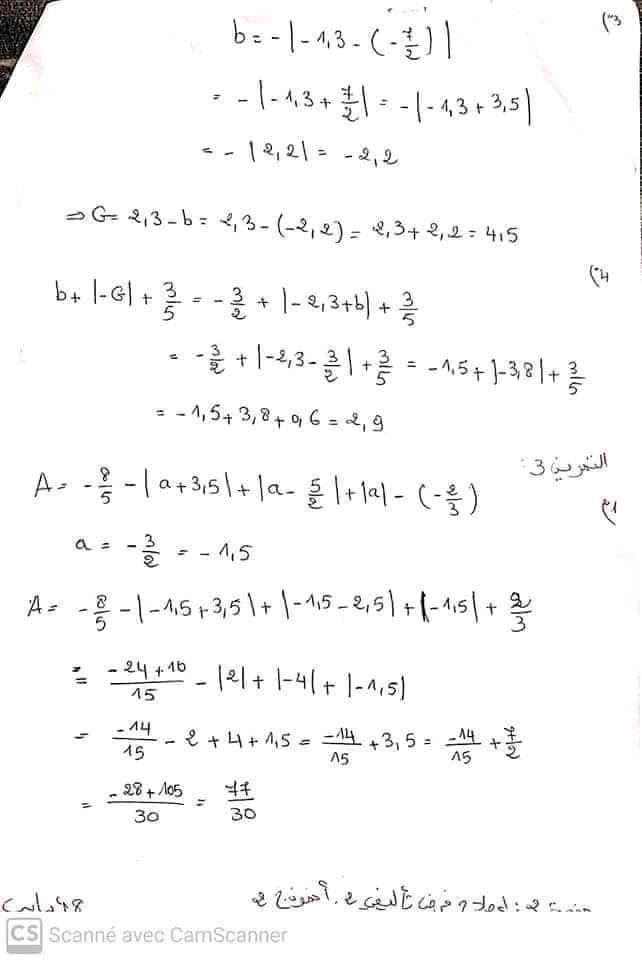 3°)
b = -|-1,3 - (-7/2)|
= -|-1,3 + 7/2| = -|-1,3 + 3,5|
= -|2,2| = -2,2
⇒ G = 2,3 - b = 2,3 - (-2,2) = 2,3 + 2,2 = 4,5
4°)
b + |-G| + 3/5 = -3/2 + |-2,3+b| + 3/5
= -3/2 + |-2,3 - 3/2| + 3/5 = -1,5 + |-3,8| + 3/5
= -1,5 + 3,8 + 0,6 = 2,9
التمرين 3:
1°)
A = -8/5 - |a+3,5| + |a - 5/2| + |a| - (-2/3)
a = -3/2 = -1,5
A = -8/5 - |-1,5+3,5| + |-1,5-2,5| + |-1,5| + 2/3
= (-24+10)/15 - |2| + |-4| + |-1,5|
= -14/15 - 2 + 4 + 1,5 = -14/15 + 3,5 = -14/15 + 7/2
= (-28+105)/30 = 77/30
CS Scanné avec CamScanner